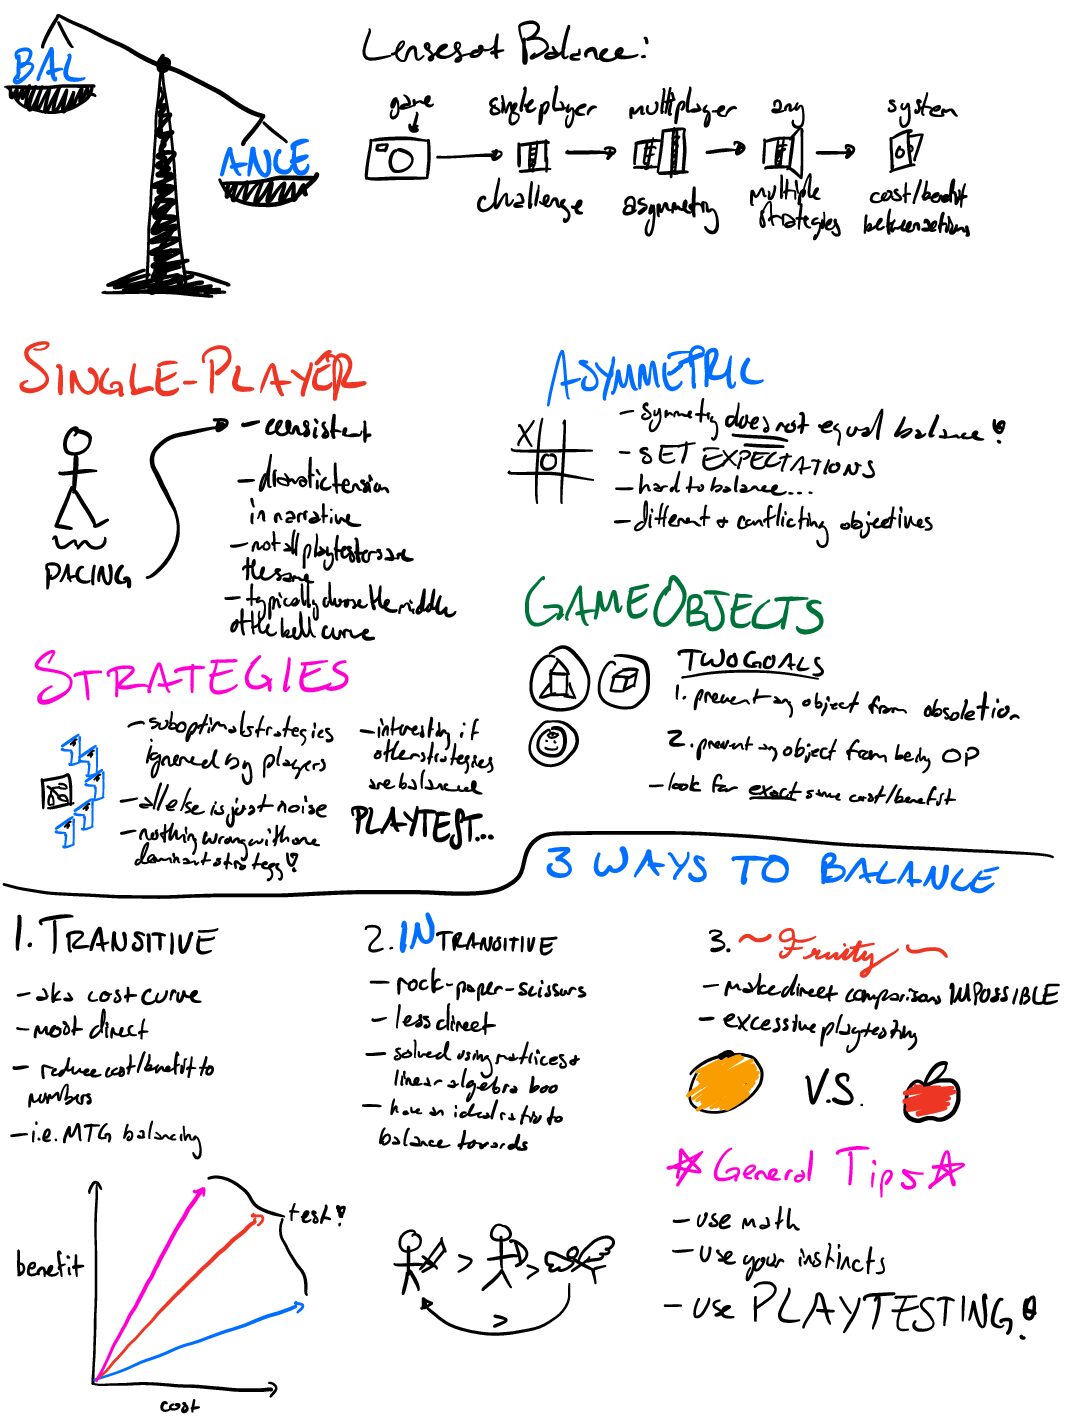 BAL
ANCE
Lenses of Balance:
game
single player
multiplayer
any
system
challenge
asymmetry
multiple
strategies
cost/benefit
between actions
SINGLE-PLAYER
PACING
- consistent
- dramatic tension
in narrative
- not all playtesters are
the same
- typically choose the middle
of the bell curve
ASYMMETRIC
X
O
- symmetry does not equal balance!
- SET EXPECTATIONS
- hard to balance...
- different & conflicting objectives
GAME OBJECTS
TWO GOALS
1. prevent any object from obsoletion
2. prevent any object from being OP
- look for exact same cost/benefit
STRATEGIES
- suboptimal strategies
ignored by players
- all else is just noise
- nothing wrong with one
dominant strategy!
- interesting if
other strategies
are balanced
PLAYTEST...
3 WAYS TO BALANCE
1. TRANSITIVE
- aka cost curve
- most direct
- reduce cost/benefit to
numbers
- i.e. MTG balancing
benefit
test!
cost
2. INTRANSITIVE
- rock-paper-scissors
- less direct
- solved using matrices &
linear algebra boo
- have an ideal ratio to
balance towards
> >
>
3. ~ Fruity ~
- make direct comparisons IMPOSSIBLE
- excessive playtesting
V.S.
General Tips
- use math
- use your instincts
- use PLAYTESTING!